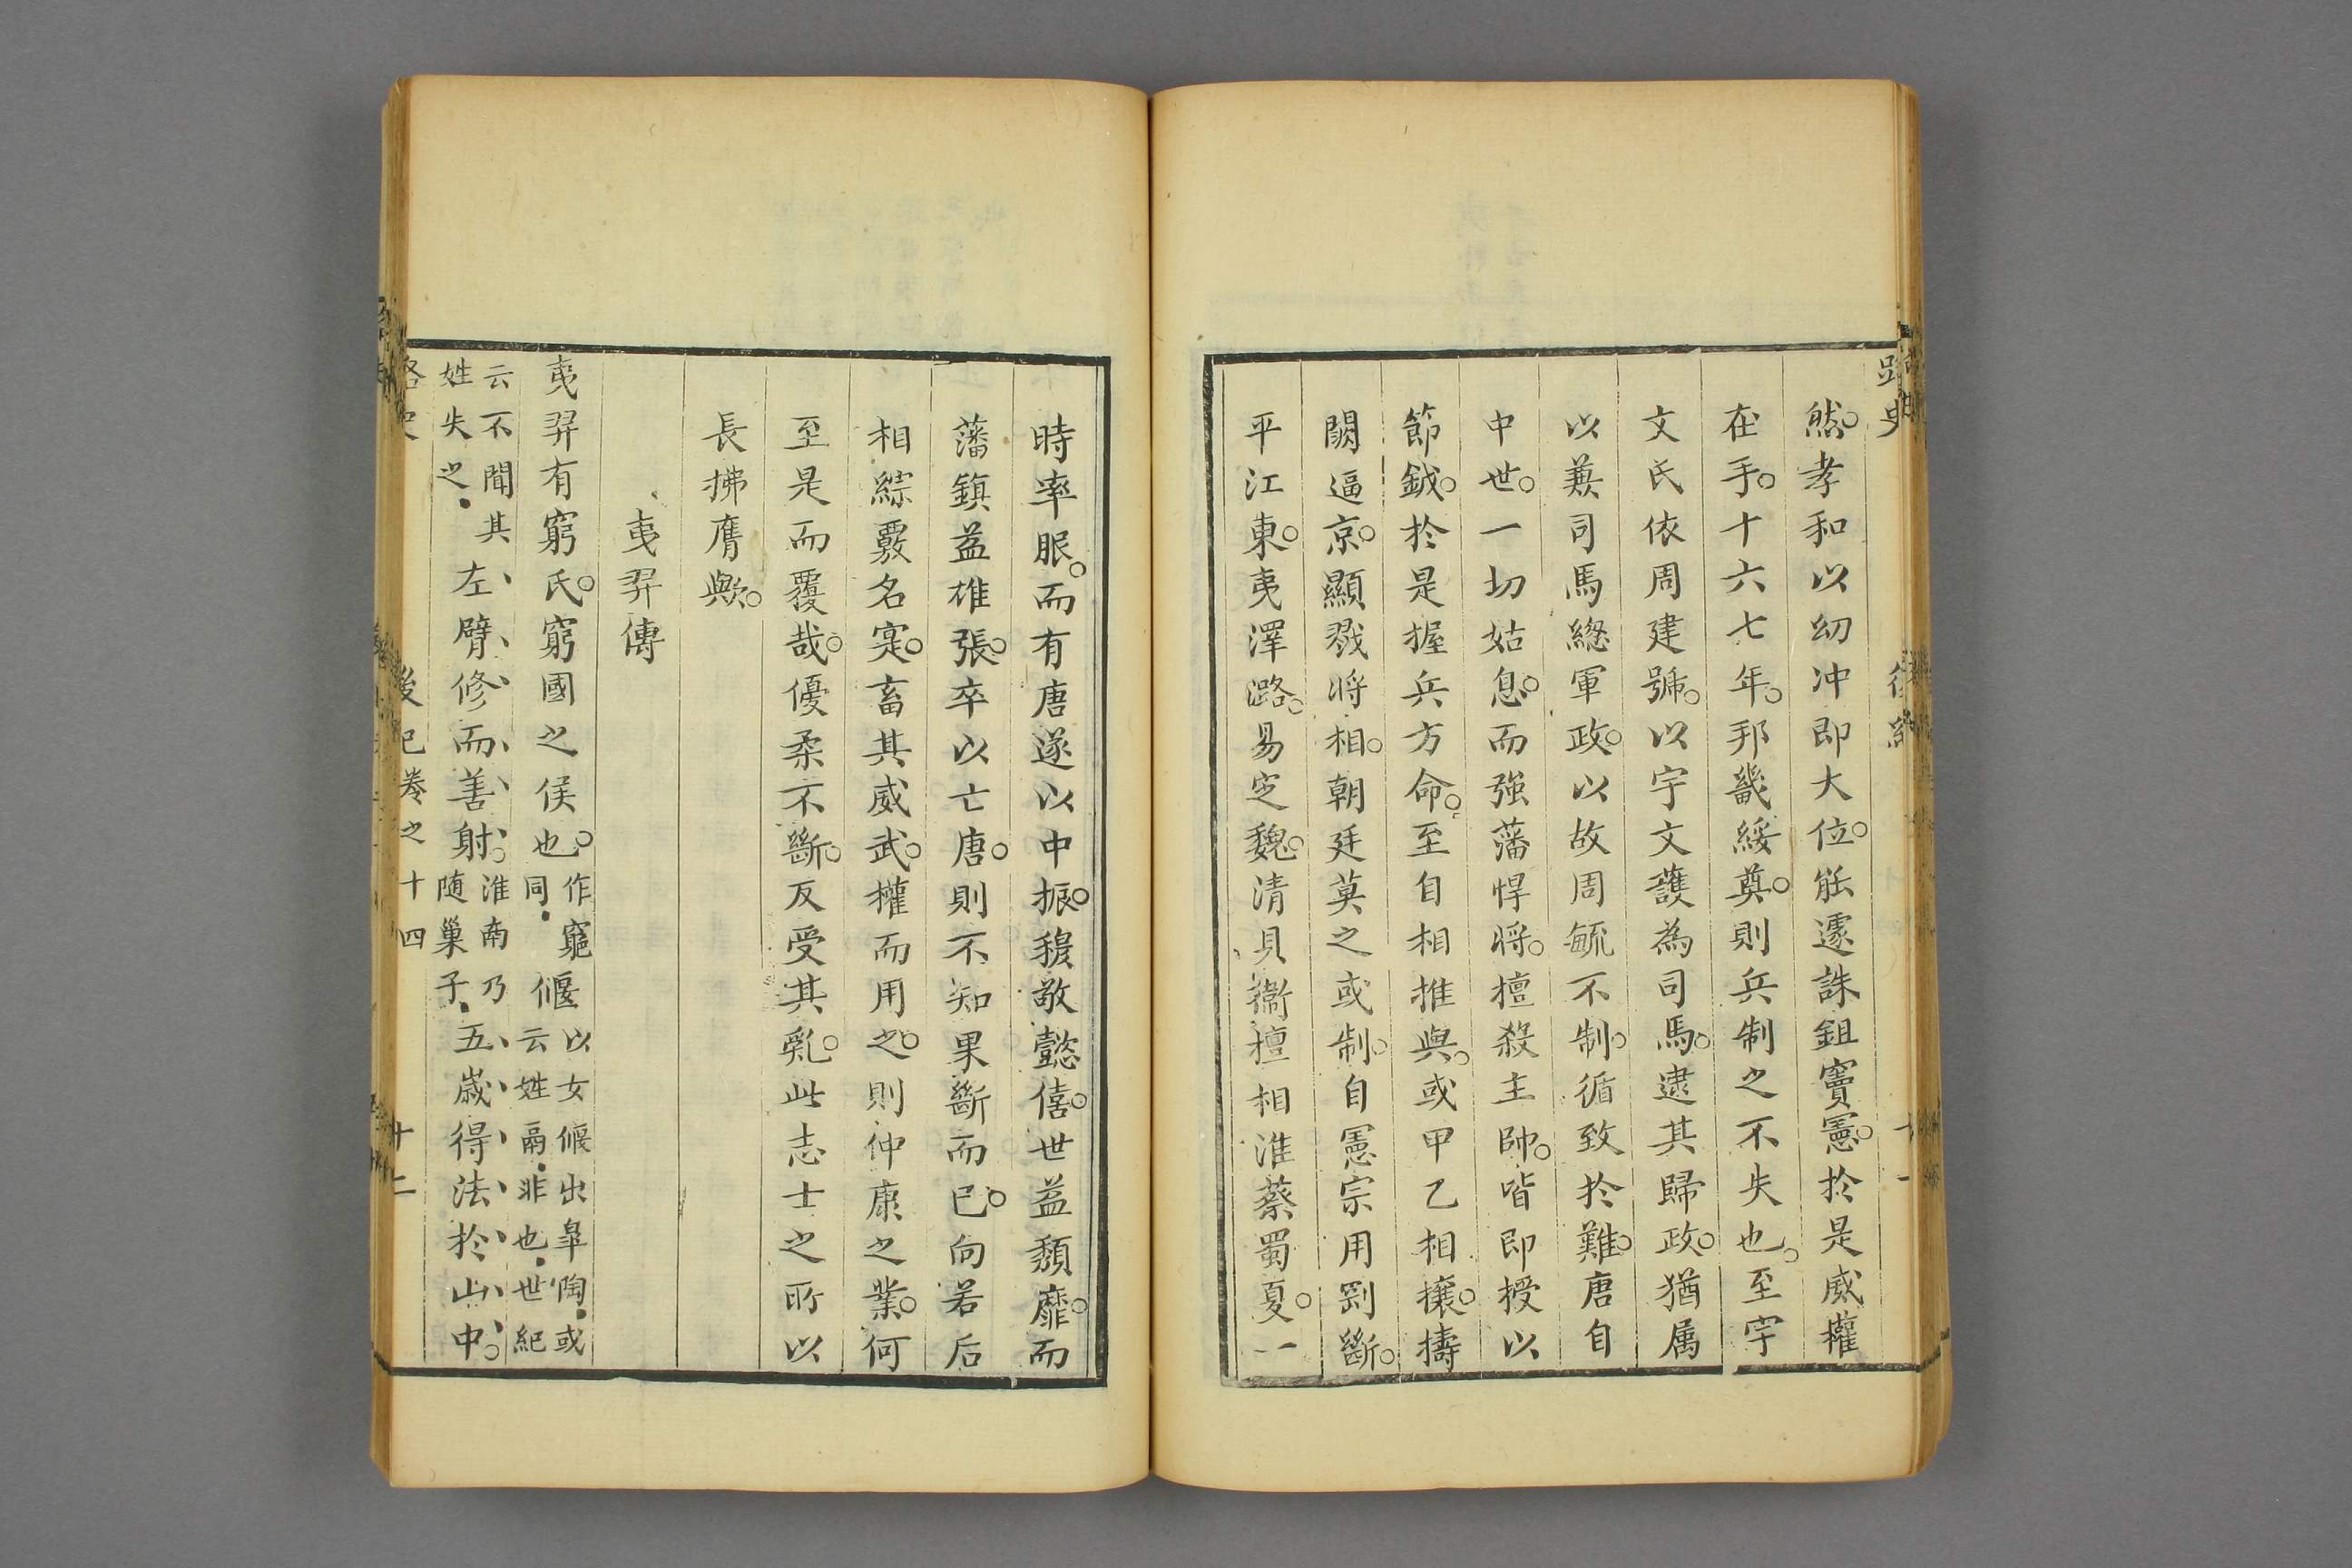 路史
後紀
十一
然孝和以幼冲即大位。能遽誅鉏竇憲。於是威權
在手。十六七年。邦畿綏奠。則兵制之不失也。至宇
文氏依周建號。以宇文護為司馬。逮其歸政。猶属
以兼司馬緫軍政。以故周毓不制。循致於難。唐自
中世。一切姑息。而強藩悍將。擅殺主帥。皆即授以
節鉞。於是握兵方命。至自相推與。或甲乙相攘。擣
闕逼京。顯戮將相。朝廷莫之或制。自憲宗用剛斷。
平江東。夷澤潞。易定魏。清貝衞檀相淮蔡蜀夏。一
時率服。而有唐遂以中振。穆敬懿僖。世益頽靡。而
藩鎮益雄張。卒以亡唐。則不知果斷而已。向若后
相綜覈名寔。畜其威武。權而用之。則仲康之業。何
至是而覆哉。優柔不斷。反受其亂。此志士之所以
長拂膺歟。
夷羿傳
夷羿有窮氏。窮國之侯也。作竆同。偃以女偃出皐陶。或云姓鬲。非也。世紀
云不聞其姓失之。左臂修而善射。淮南乃随巢子。五歲得法於山中。
路史
後紀卷之十四
十二